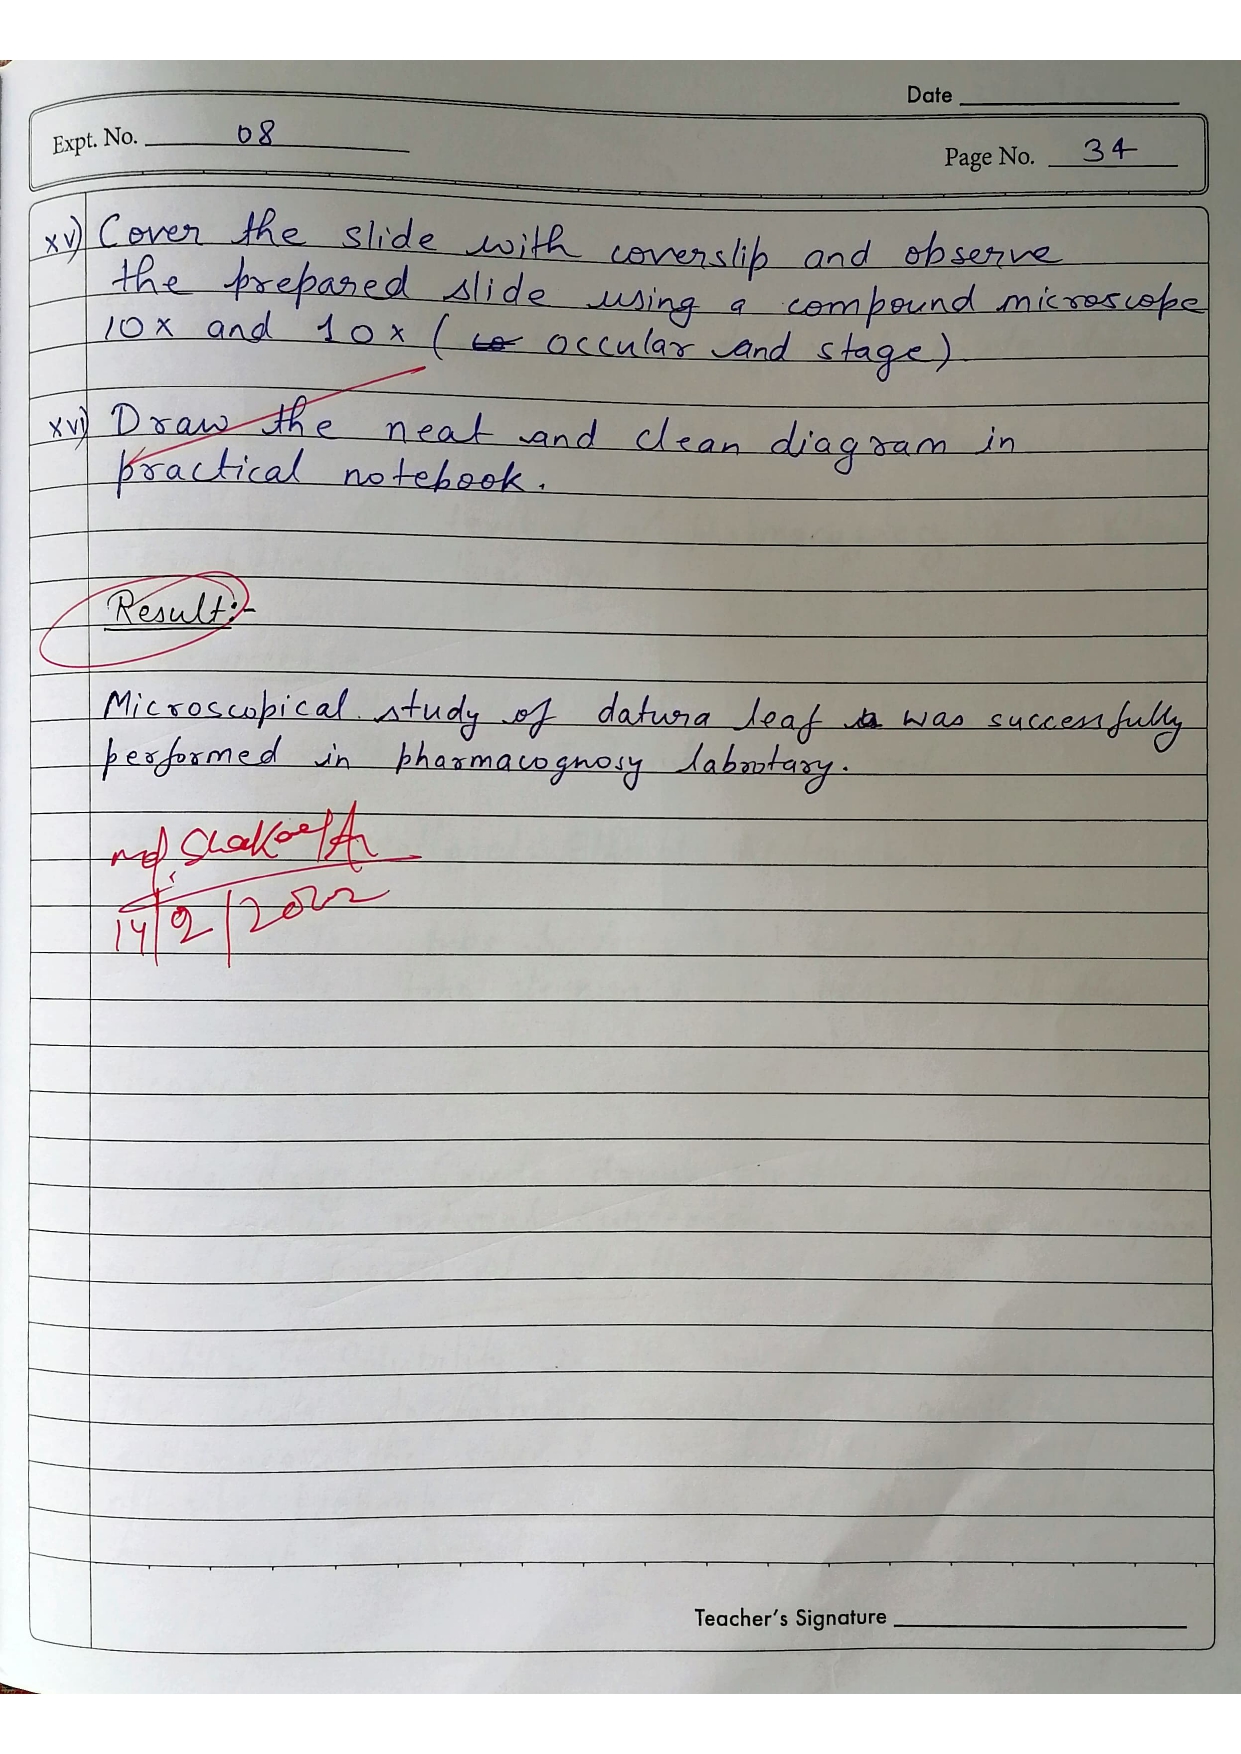 Date
Expt. No. 08
Page No. 34
xv) Cover the slide with coverslip and observe
the prepared slide using a compound microscope
10x and 10x ( occular and stage)
xvi) Draw the neat and clean diagram in
practical notebook.
Result:-
Microscopical study of datura leaf was successfully
performed in pharmacognosy labrotary.
md
14/2/2022
Teacher's Signature